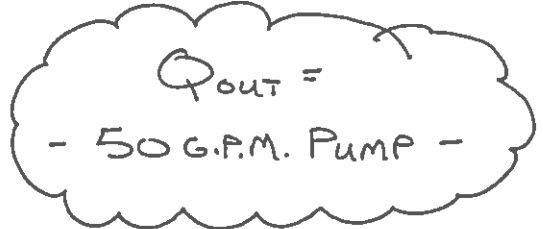 QOUT =
- 50 G.P.M. PUMP -